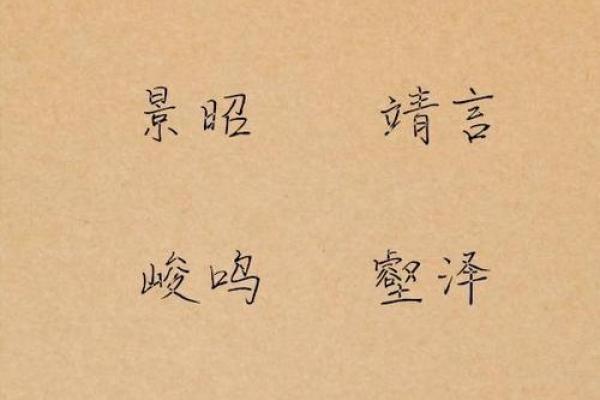 景昭 靖言
峻鸣 壑泽